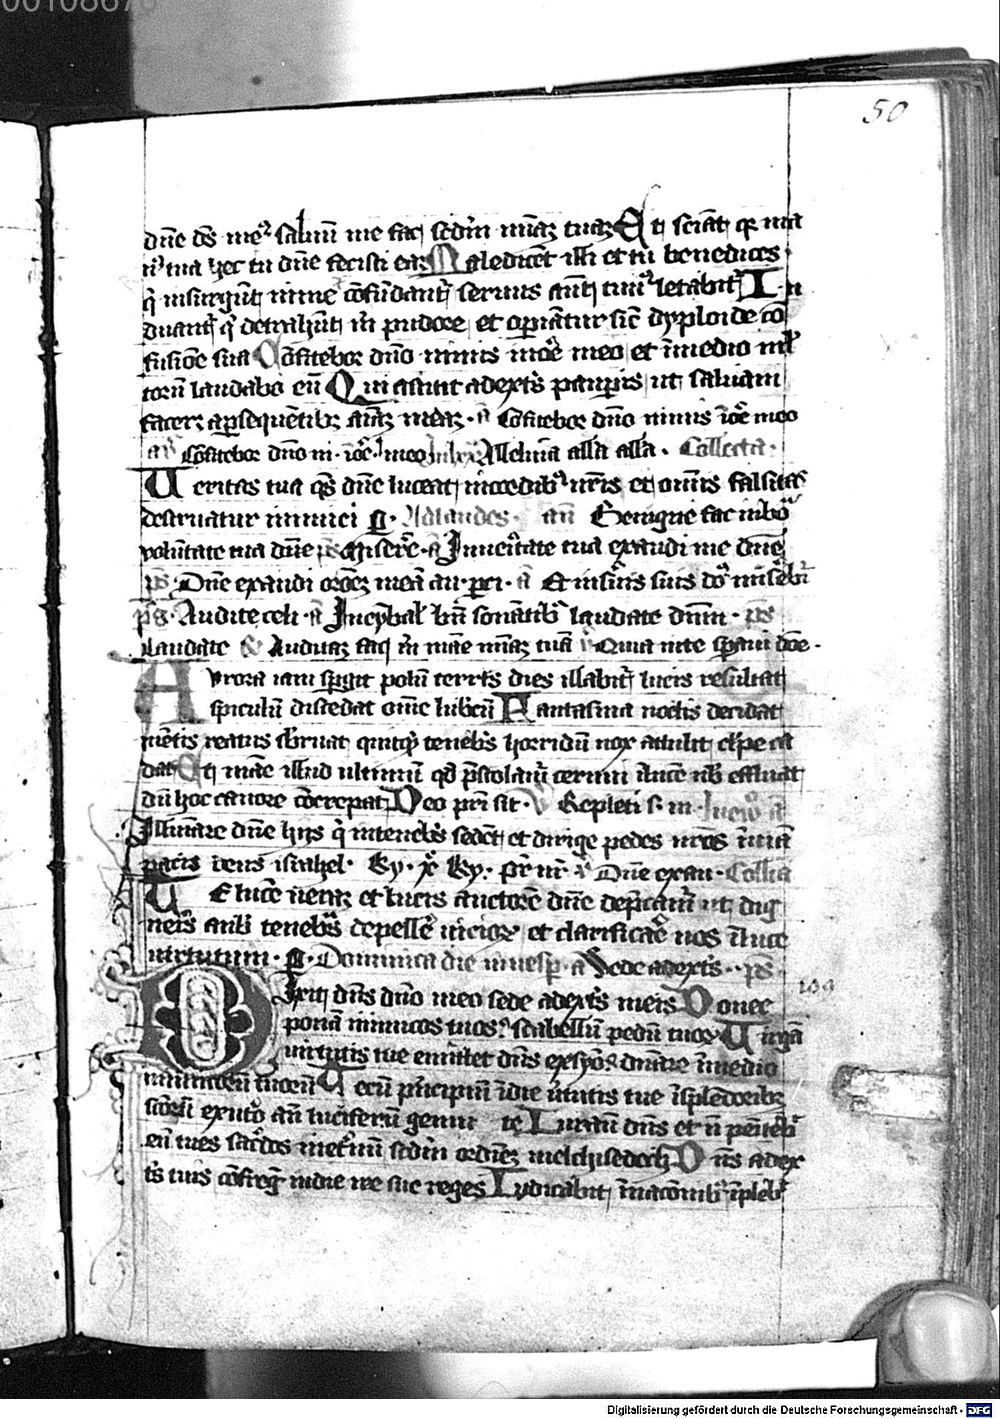 00108676
50
dn̄e ds̄ meꝰ saluū me fac scdm̄ mīaꝫ tuaꝫ Et sciāt qꝛ manꝰ
tua hec tu dn̄e fecisti eaꝫ Maledicēt illi et tu benedices
q̄ insurgūt in me cōfūdant᷑ seruus aūt tuus letabit᷑ In
duant᷑ q̄ detrahūt m̄ pudore et opiāt᷑ur sic̄ dyploide cō
fusiōe sua Cōfitebor dn̄o nimis in ore meo et ī medio ml̓
torū laudabo eū Qui astitit a dextꝭ paupis ut saluam
faceret a psequētibꝫ aīaꝫ meaꝫ · a Cōfitebor dn̄o nimis ī oꝛe meo
an̄ Cōfitebor dn̄o ni · ī oꝛe meo Alleluia alla alla · Collecta ·
Ueritas tua qs̄ dn̄e luceat in coꝛdibꝰ nr̄is et omīs falsitas
destruatur inimici p · Ad laudes · an̄ Benigne fac in boā
volūtate tua dn̄e ps Miserē · a In ueritate tua exaudi me dn̄e
ps Dn̄e exaudi oꝛōeꝫ meā au · per · a Et in suis suis ds̄ misebit᷑
ps · Audite celi · a In cymbal̓ bn̄ sonātibꝰ laudate dn̄m · ps
Laudate R Auditaꝫ fac m̄ mane mīaꝫ tuā v Quia in te spaui dn̄e ·
Aurora iam spgit polū terris dies illabit᷑ lucis resultat
spiculū discedat omē lubricū Fantasma noctis decidat
mētis reatus subruat quicqd tenebris horridū nox attulit culpe ca
dat Et mane illud ultimū qd̄ p̄stolam᷑ cernui ī luce nb̄ effluat
dū hoc canore cōcrepat Deo pri̓ sit · v Repleti sꝰ m · In euāg a
Illumīare dn̄e hijs q̄ in tenebris sedēt et dirige pedes nr̄os ī uiā
pacis deus israhel · Ky · xp̄e Ky · pr̄ nr̄ · v Dn̄e exau · Collecta
Ue luce ueraꝫ et lucis auctorē dn̄e dep̄cam᷑ ut dig
neris a nob̄ tenebras depellē uicioꝝ et clarificaē nos ī luce
uirtutum · p · Dominica die in vesp̄ · a Sede a dextꝭ · ps
Dixit dn̄s dn̄o meo sede a dextꝭ meis Donec 109
ponā inimicos tuos · scabellū pedū tuoꝝ Uirgā
uirtutis tue emittet dn̄s ex syō · dn̄are ī medio
inimicoꝝ tuoꝝ Tecū pn̄cipiū ī die ūtutis tue ī splēdoꝛibꝫ
scōꝝ ex utero an̄ luciferū genui te Iurauit dn̄s et nō penitebit
eū tu es sacerdos in etn̄um scdm̄ ordinē melchisedech Dn̄s a dex
tꝭ tuis cōfregit in die ire sue reges Iudicabit ī nacōnibꝰ īplebit
Digitalisierung gefördert durch die Deutsche Forschungsgemeinschaft - DFG